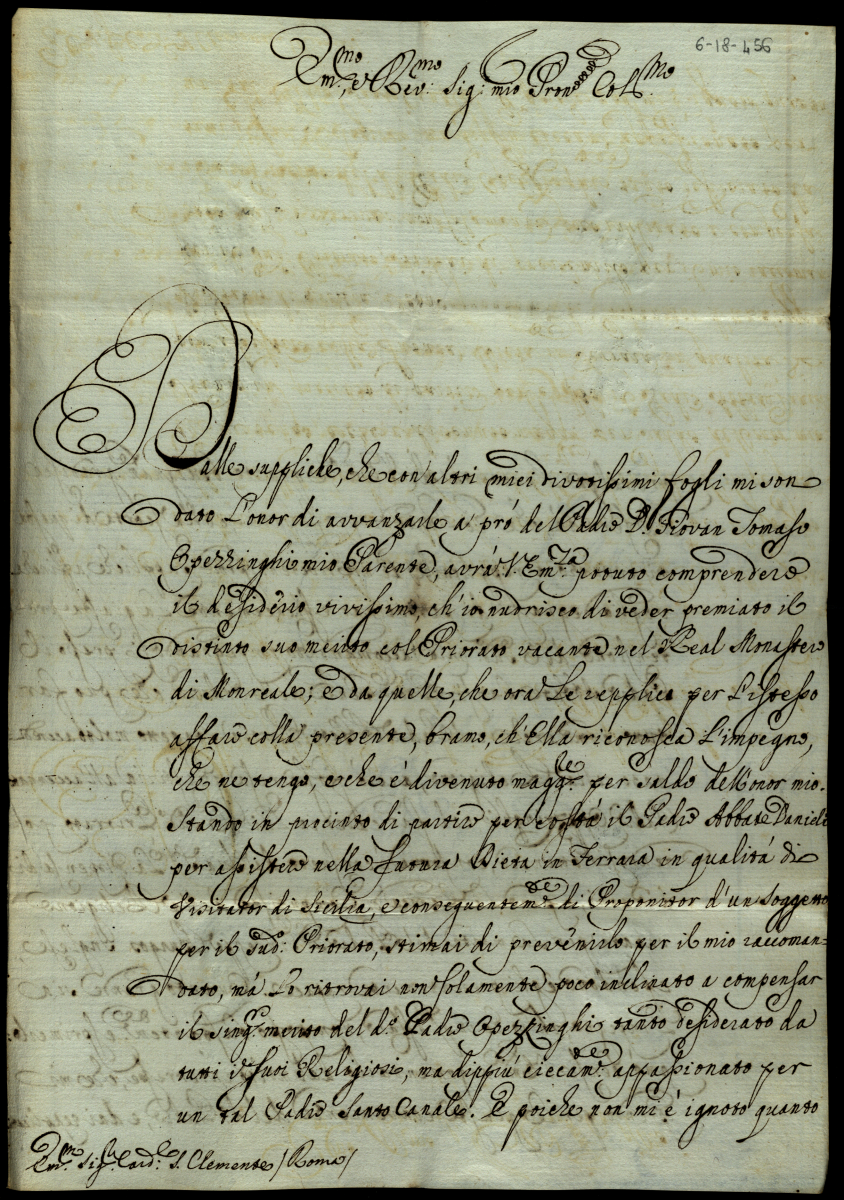 6-18-456
Em.mo, e Rev:mo Sig: mio Pron Coll.mo
Dalle suppliche, che con altri miei divotissimi fogli mi son
dato l'onor di avvanzarle a pró del Padre D. Giovan Tomaso
Opezzinghi mio Parente, avrá V. Em.za potuto comprendere
il desiderio vivissimo, ch'io nudrisco di veder premiato il
distinto suo merito col Priorato vacante nel Real Monastero
di Monreale; e da quelle, che ora Le replico per l'istesso
affare colla presente, bramo, ch'Ella riconosca l'impegno,
che ne tengo, e che é divenuto magg.re per saldo dell'onor mio.
Stando in procinto di partire per costá il Padre Abbate Daniele
per assistere nella futura Dieta in Ferrara in qualitá di
Visitator di Sicilia, e conseguentem.te di Proponitor d'un Soggetto
per il sud.o Priorato, stimai di prevenirlo per il mio raccoman=
dato, má Lo ritrovai non solamente poco inclinato a compensar
il sing.r merito del d.o Padre Opezzinghi tanto desiderato da
tutti i suoi Religiosi, ma dippiú ciecam.te appassionato per
un tal Padre Santo Canale. E poiche non mi é ignoto quanto
Em.mo Sig.r Card.le S. Clemente /Roma/